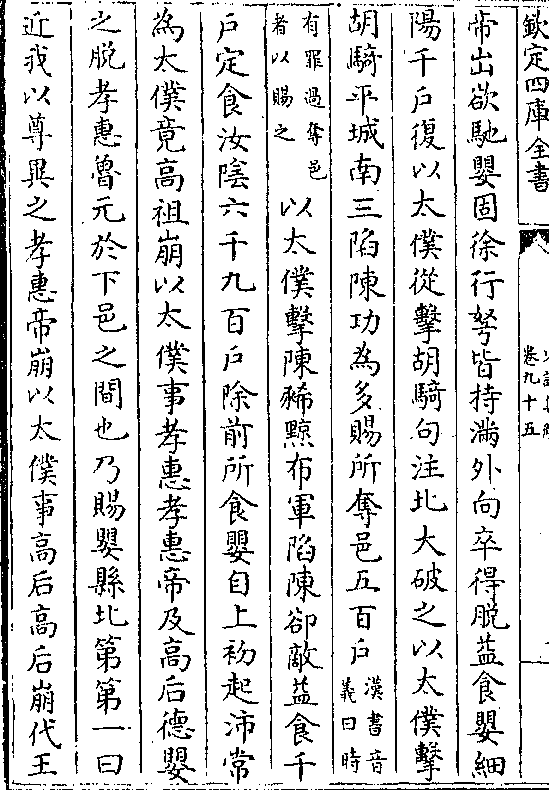 欽定四庫全書
卷九十五
帝出欲馳嬰固徐行弩皆持滿外向卒得脫益食嬰細
陽千戶復以太僕從擊胡騎句注北大破之以太僕擊
胡騎平城南三陷陳功為多賜所奪邑五百戶漢書音義曰時
有罪過奪邑者以賜之以太僕擊陳豨黥布軍陷陳卻敵益食千
戶定食汝陰六千九百戶除前所食嬰自上初起沛常
為太僕竟高祖崩以太僕事孝惠孝惠帝及高后德嬰
之脫孝惠魯元於下邑之間也乃賜嬰縣北第第一曰
近我以尊異之孝惠帝崩以太僕事高后高后崩代王